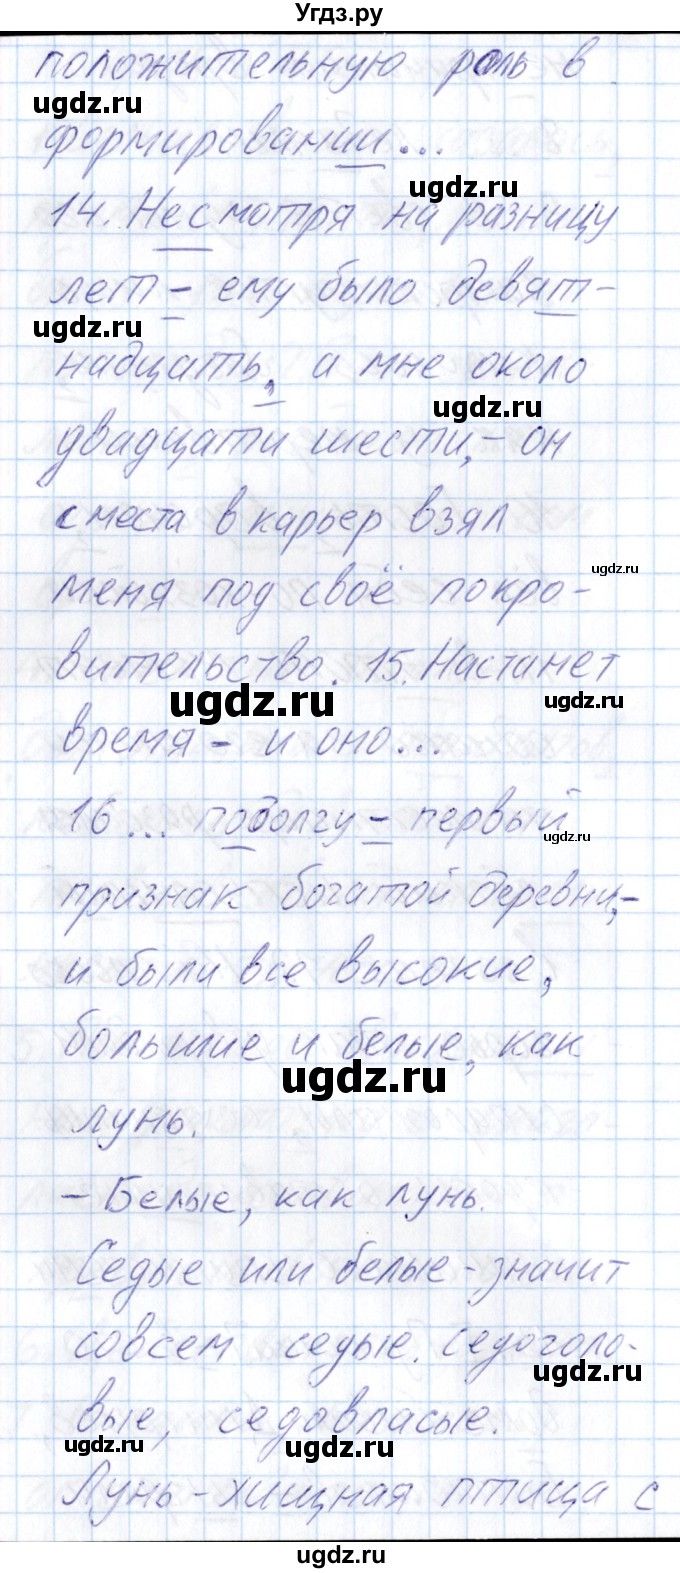 Угдз.ру
положительную роль в
ugdz.ru
формировании...
ugdz.ru
14. Несмотря на разницу
лет - ему было девят-
ugdz.ru
надцать, а мне около
ugdz.ru
двадцати шести, - он
с места в карьер взял
ugdz.ru
меня под своё покро-
вительство. 15. Настанет
ugdz.ru
ugdz.ru
время - и оно...
16... подолгу - первый
ugdz.ru
признак богатой деревни, -
и были все высокие,
большие и белые, как
ugdz.ru
лунь.
- Белые, как лунь.
Седые или белые - значит
совсем седые. Седоголо-
ugdz.ru
вые, седовласые.
ugdz.ru
ugdz.ru
Лунь - хищная птица с
ugdz.ru